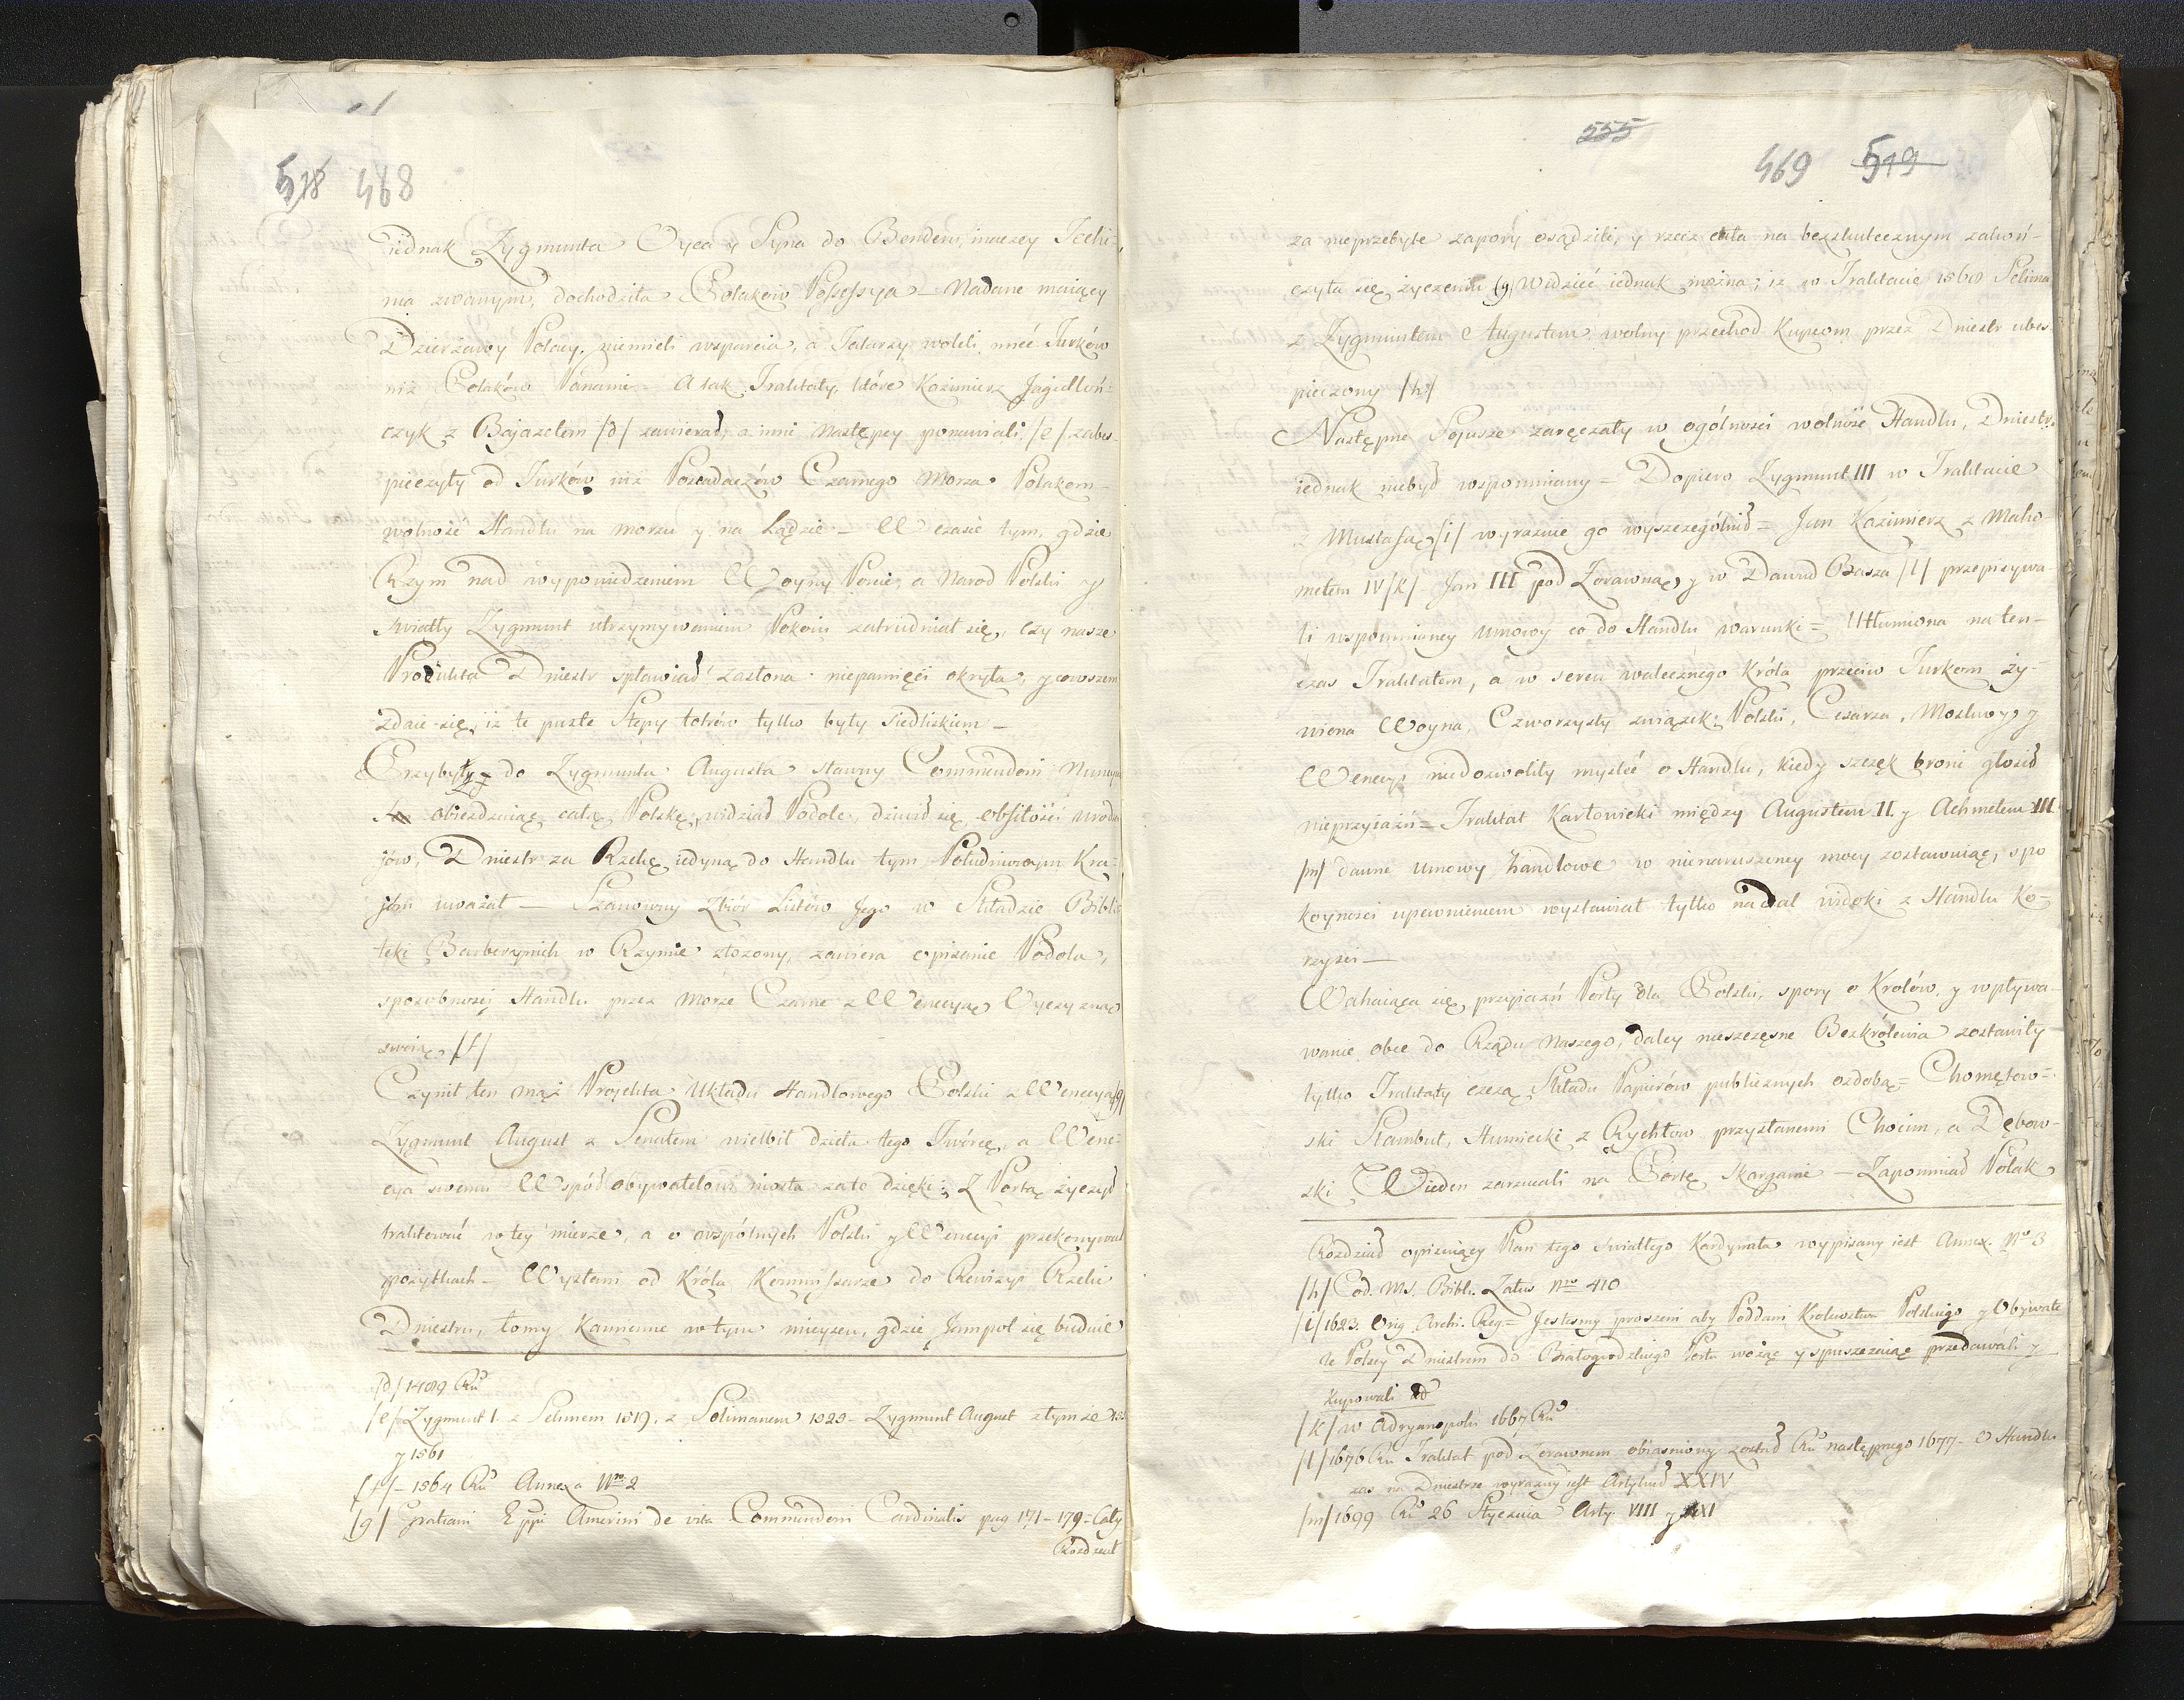 518 468
iednak Zygmunta Oyca y Syna do Benderu, inaczey Techi-
nia zwanym, dochodziła Polaków Possessya — Nadane maiący
Dzierżawy Polacy, niemieli wsparcia, a Tatarzy woleli mieć Turków
niż Polaków Panami — A tak Traktaty, które Kazimierz Jagiellóń-
czyk z Bajazetem /d/ zawierał, a inni Następcy ponawiali, /e/ zabes-
pieczyły od Turków iuż Posiadaczów Czarnego Morza Polakom
wolność Handlu na morzu y na Lądzie — W czasie tym, gdzie
Rzym nad wypowiedzeniem Woyny Porcie, a Narod Polski y
światły Zygmunt utrzymywaniem Pokoiu zatrudniał się, czy nasze
Produkta Dniestr spławiał zasłona niepamięci okryła, y owszem
zdaie się, iż te puste Stepy łotrów tylko były siedliskiem —
Przybyły do Zygmunta Augusta sławny Commendoni
obieżdzaiąc całą Polskę, widział Podole, dziwił się obfitości urodza-
jów, Dniestr za Rzekę iedyną do Handlu tym Południowym Kra-
jom uważał — Szanowny Zbiór Listów Jego w Składzie Biblio
teki Barberynich w Rzymie złożony, zawiera opisanie Podola,
sposobności Handlu przez Morze Czarne z Wenecyą Oyczyzną
swoią /f/
Czynił ten mąż Projekta Układu Handlowego Polski z Wenecyą /g/
Zygmunt August z Senatem wielbił dzieła tego Twórcę, a Wene-
cya swemu Współobywatelowi niosła zato dzięki; Z Portą życzył
traktować w tey mierze, a o wspólnych Polski y Wenecyi przekonywał
pożytkach — Wysłani od Króla Kommissarze do Rewizyi Rzeki
Dniestru, łomy Kamienne w tym mieyscu, gdzie Jampol się buduie
/d/ 1489 Ru
/e/ Zygmunt I. z Selimem 1519, z Solimanem 1525 — Zygmunt August z tymże
y 1561
/f/ — 1564 Ru Annexa Nro 2
/g/ Gratiani Eppi Amerini de vita Commendoni Cardinalis pag 171 – 179 = Cały
Rozdział
555
469 519
za nieprzebyte zapory osądzili, y rzecz cała na bezskutecznym zakoń-
czyła się życzeniu (g) Widzieć iednak można, iż w Traktacie 1568 Selima
z Zygmuntem Augustem wolny przechod Kupcom przez Dniestr ubes-
pieczony /h/
Następne Sojusze zaręczały w ogólności wolność Handlu, Dniestr
iednak niebył wspomniany — Dopiero Zygmunt III w Traktacie
z Mustafą /i/ wyraznie go wyszczególnił = Jan Kazimierz z Maho-
metem IV /k/ Jan III pod Zorawną, y w Dawud Basza /l/ przepisywa
li wspomnianey umowy co do Handlu warunki = Utłumiona na ten-
czas Traktatem, a w sercu walecznego Króla przeciw Turkom ży-
wiona Woyna, Czworzysty związek Polski, Cesarza, Moskwy, y
Wenecyi niedozwoliły myśleć o Handlu, kiedy szczęk broni głosił
nieprzyiaźń = Traktat Karłowicki między Augustem II. y Achmetem III
/m/ dawne umowy handlowe w nienaruszoney mocy zostawuiąc, spo
koyności upewnieniem wystawiał tylko nadal widoki z Handlu Ko-
rzyści —
Wahaiąca się przyiaźń Porty dla Polski, spory o Królów, y wpływa-
wanie obce do Rządu Naszego, daley nieszczęsne Bezkrólewia zostawiły
tylko Traktaty czczą Składu Papierów publicznych ozdobą = Chomętow-
ski Stambuł, Humiecki z Rychłow przysłanemi Chocim, a Dębow-
ski Wideń zarzucali na Portę skargami — Zapomniał Polak
Rozdział opisuiący Plan tego światłego Kardynała wypisany iest Annex. Nro 3
/h/ Cod. MS. Bibli. Zalus Nro 410
/i/ 1623. Orig. Archi. Reg = Jesteśmy proszeni aby Poddani Krolewstwa Polskiego y Obywate
le Polscy Dniestrem do Białogrodzkiego Portu wożąc y spuszczaiąc przedawali y
Kupowali
/k/ w Adryanopolu 1667 Ru
/l/ 1676 Ru Traktat pod Zorawnem obiasniony został Ru następnego 1677 — O Handlu
zas na Dniestrze wyrazny iest Artykuł XXIV
/m/ 1699 Ru 26 Stycznia Arty. VIII y XI